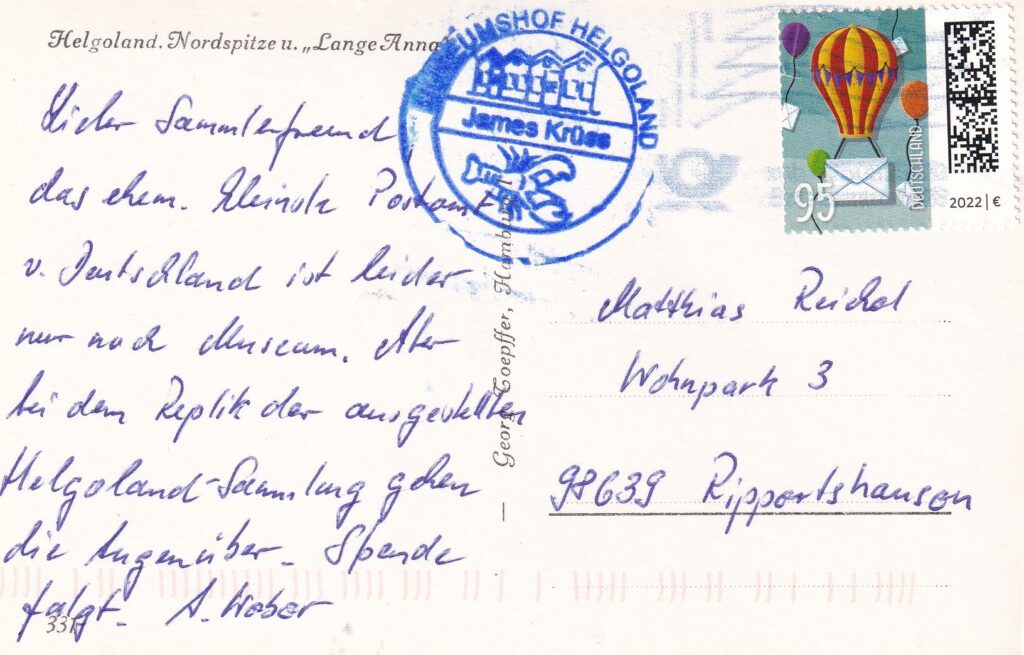 Helgoland. Nordspitze u. „Lange Anna
MUSEUMSHOF HELGOLAND
James Krüss
95
DEUTSCHLAND
2022 | €
Lieber Sammlerfreund
das ehem. kleinste Postamt
v. Deutschland ist leider
nur noch Museum. Aber
bei dem Replik der ausgestellten
Helgoland-Sammlung gehen
die Augen über. Spende
folgt. A. Weber
331
Georg Toepffer, Hamburg 1
Matthias Reichel
Wohnpark 3
98639 Rippertshausen